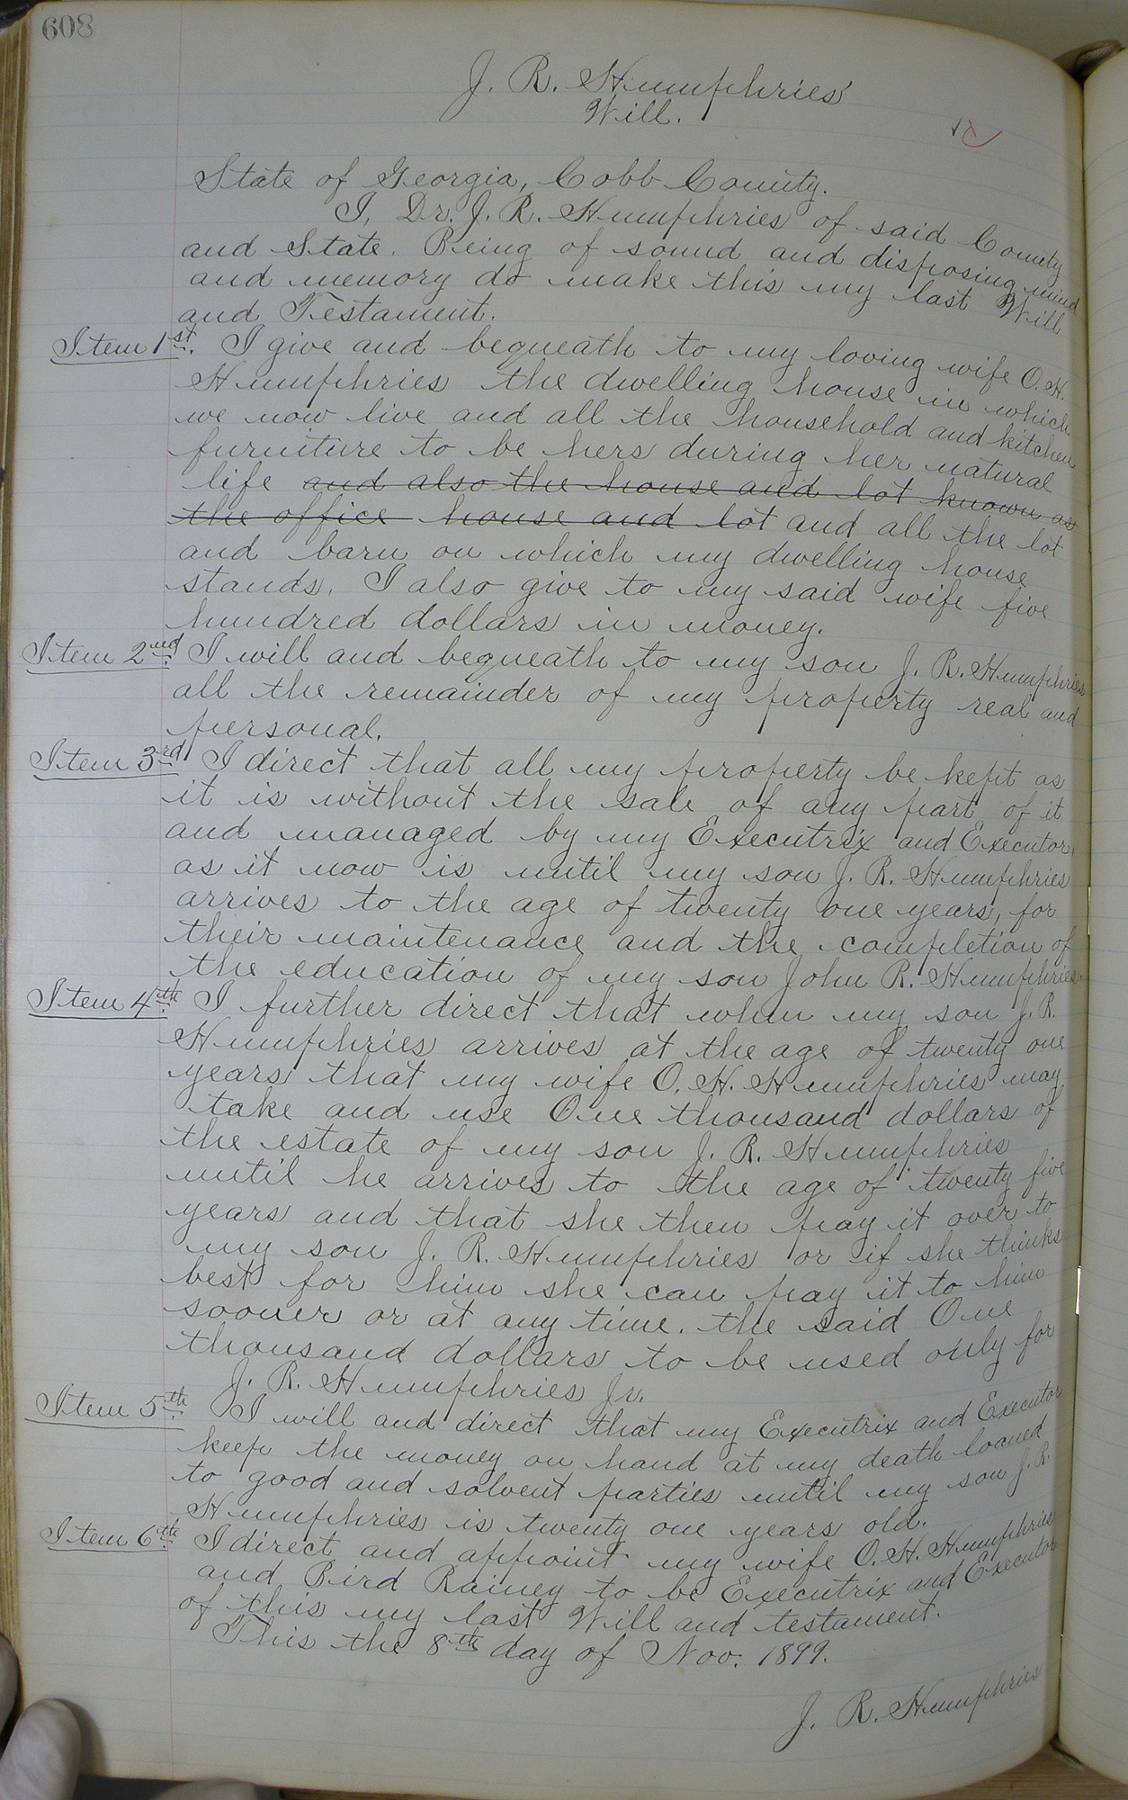 608
J. R. Humphries'
Will.
State of Georgia, Cobb County.
I, Dr. J. R. Humphries of said County
and State. Being of sound and disposing mind
and memory do make this my last Will
and Testament.
Item 1st. I give and bequeath to my loving wife O. H.
Humphries the dwelling house in which
we now live and all the household and kitchen
furniture to be hers during her natural
life and also the house and lot known as
the office house and lot and all the lot
and barn on which my dwelling house
stands. I also give to my said wife five
hundred dollars in money.
Item 2nd. I will and bequeath to my son J. R. Humphries
all the remainder of my property real and
personal.
Item 3rd I direct that all my property be kept as
it is without the sale of any part of it
and managed by my Executrix and Executor
as it now is until my son J. R. Humphries
arrives to the age of twenty one years, for
their maintenance and the completion of
the education of my son John R. Humphries.
Item 4th. I further direct that when my son J. R.
Humphries arrives at the age of twenty one
years that my wife O. H. Humphries may
take and use One thousand dollars of
the estate of my son J. R. Humphries
until he arrives to the age of twenty five
years and that she then pay it over to
my son J. R. Humphries or if she thinks
best for him she can pay it to him
sooner or at any time. the said One
thousand dollars to be used only for
J. R. Humphries Jr.
Item 5th. I will and direct that my Executrix and Executor
keep the money on hand at my death loaned
to good and solvent parties until my son J. R.
Humphries is twenty one years old.
Item 6th I direct and appoint my wife O. H. Humphries
and Bird Rainey to be Executrix and Executor
of this my last Will and testament.
This the 8th day of Nov. 1899.
J. R. Humphries